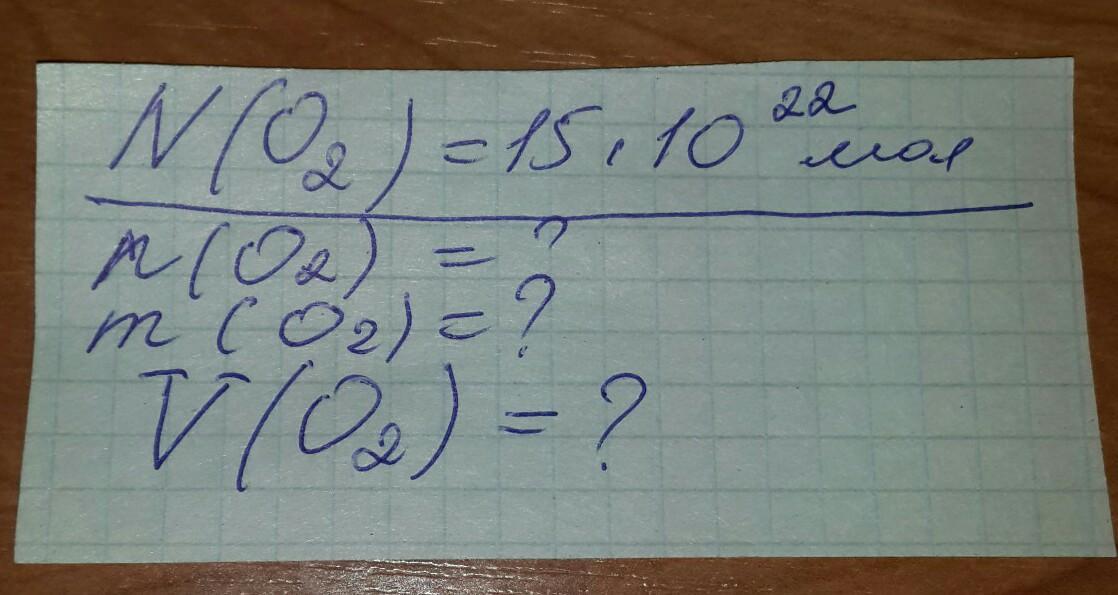 N(O₂) = 15 · 10²² мол
n(O₂) = ?
m(O₂) = ?
V(O₂) = ?